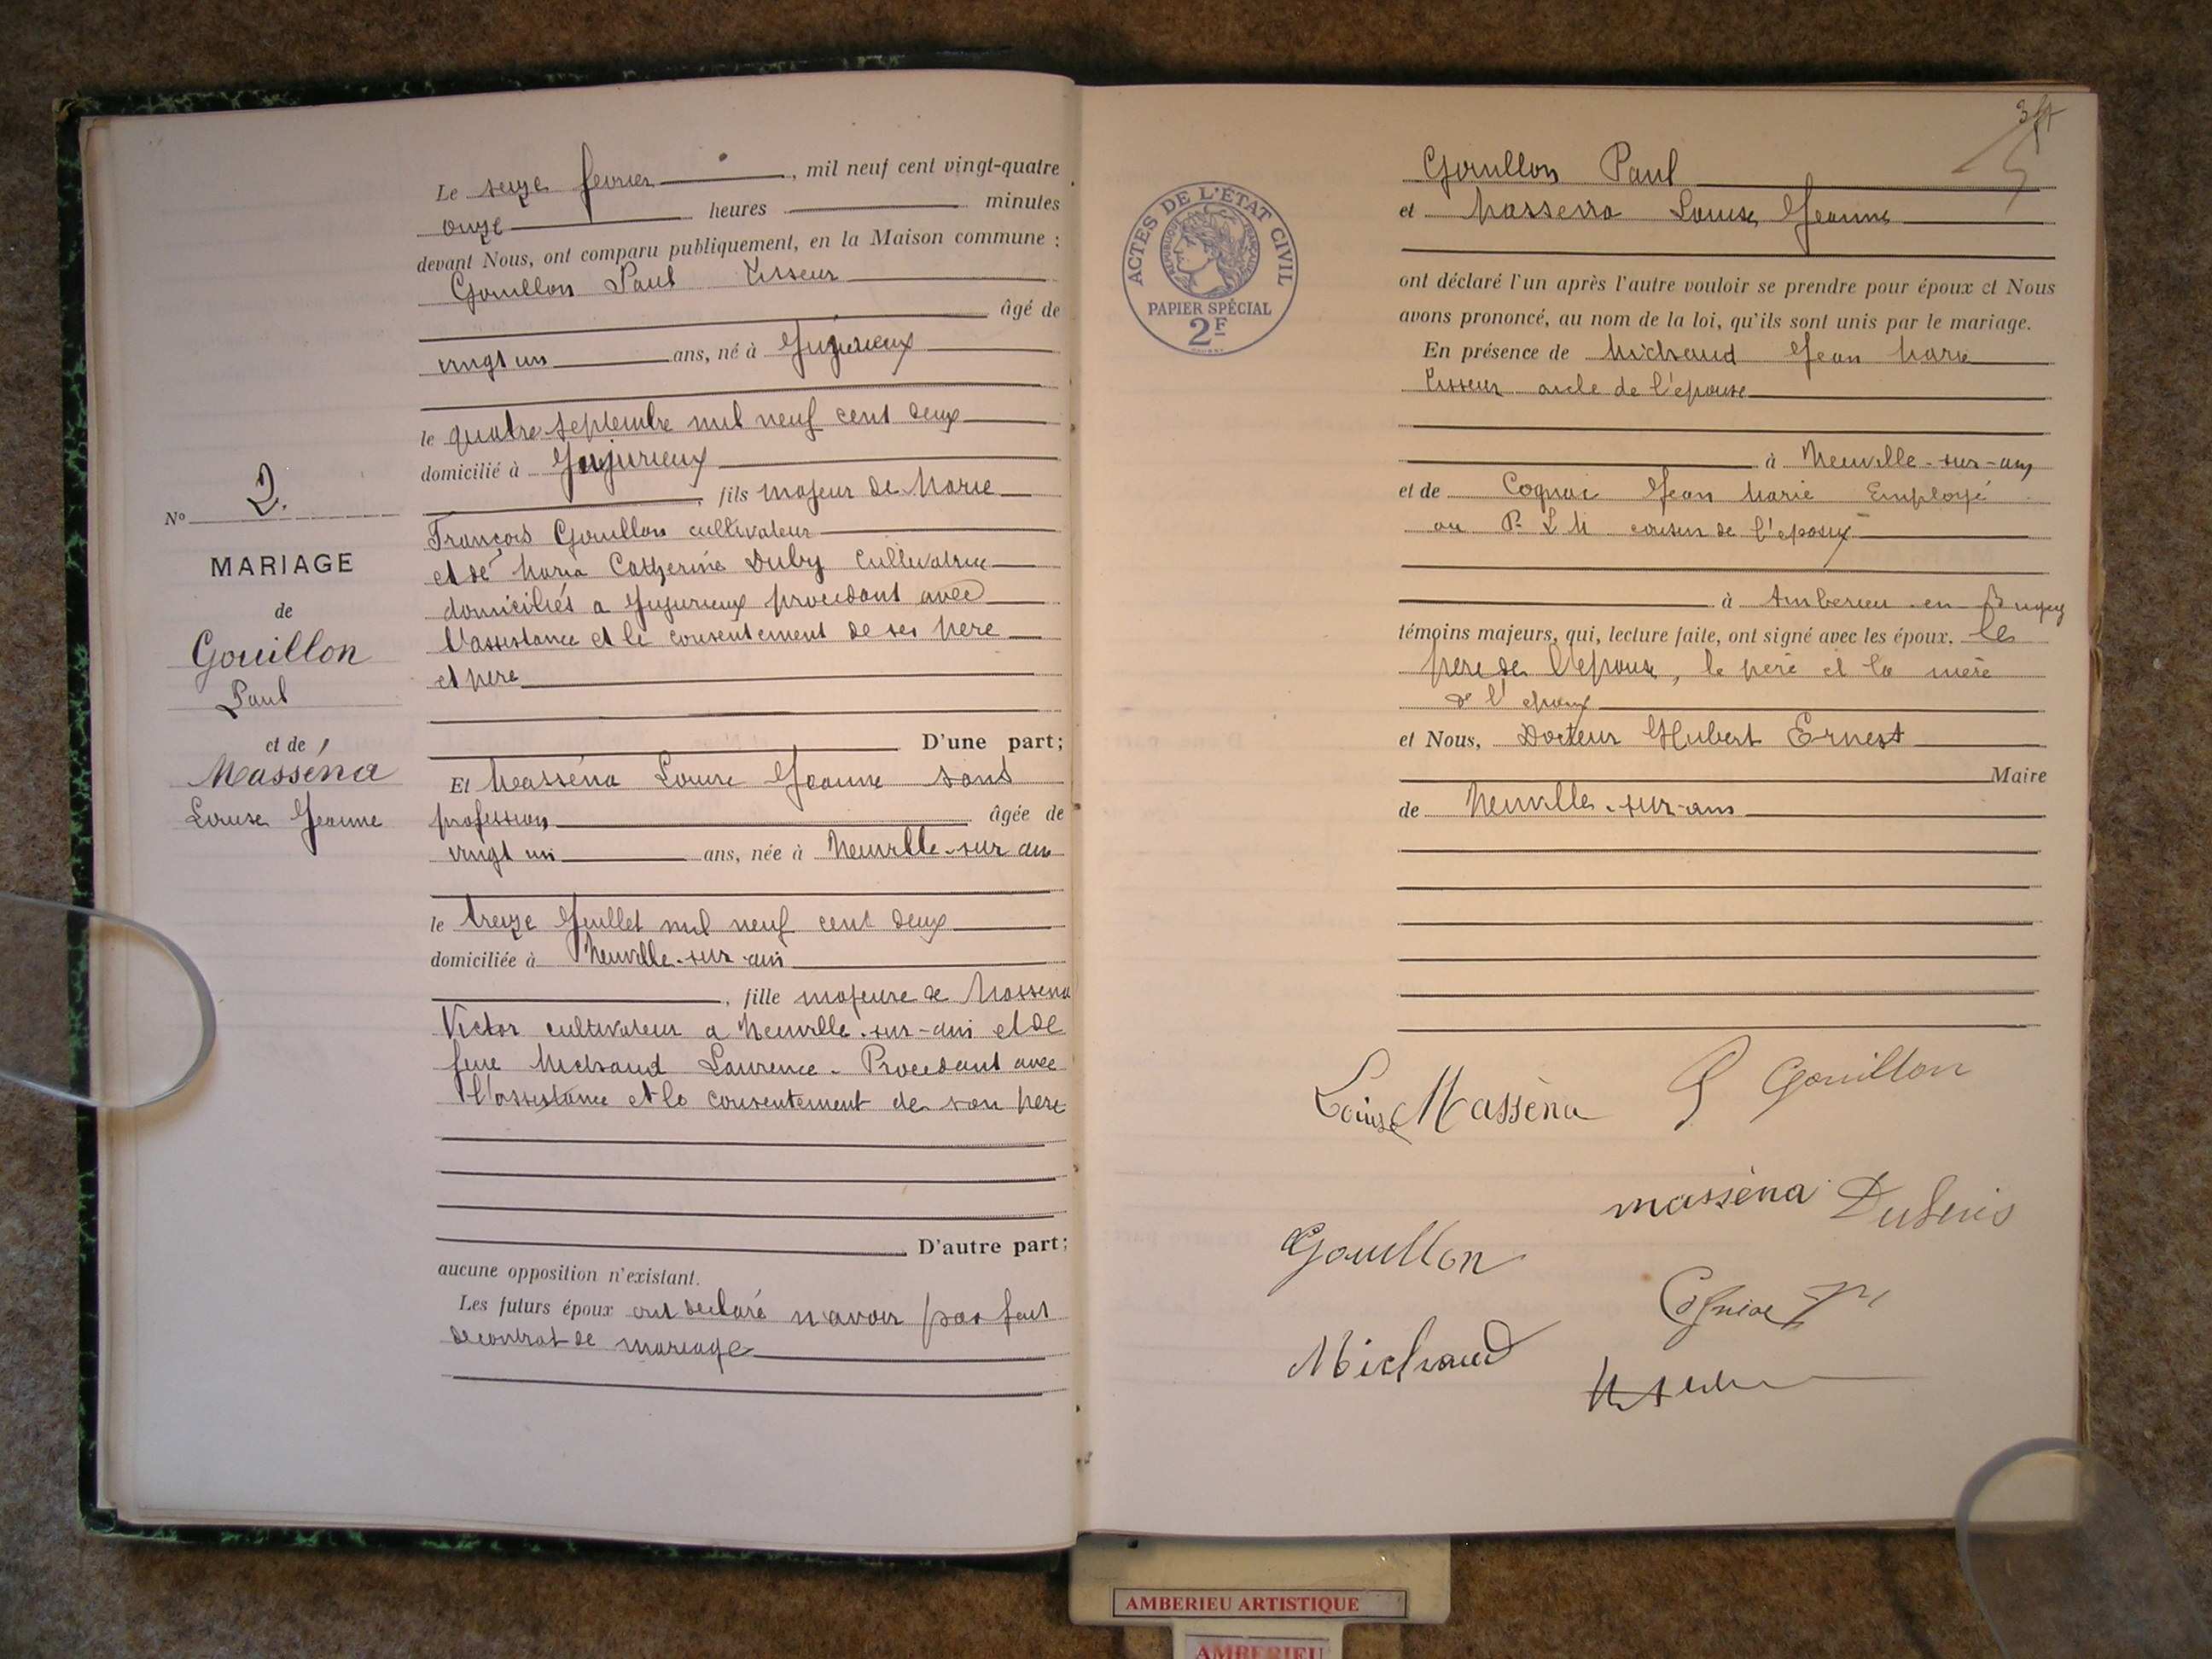 Le seize fevrier, mil neuf cent vingt-quatre
onze heures minutes
devant Nous, ont comparu publiquement, en la Maison commune :
Gouillon Paul Tisseur
âgé de
vingt un ans, né à Jujurieux
le quatre septembre mil neuf cent deux
domicilié à Jujurieux
, fils majeur de Marie
François Gouillon cultivateur
et de Maria Catherine Duby cultivatrice
domiciliés a Jujurieux procedant avec
l'assistance et le consentement de ses pere
et pere
D'une part;
Et Masséna Louise Jeanne sans
profession âgée de
vingt un ans, née à Neuville-sur ain
le treize Juillet mil neuf cent deux
domiciliée à Neuville-sur-ain
, fille majeure de Massena
Victor cultivateur a Neuville-sur-ain et de
feue Michaud Laurence - Procedant avec
l'assistance et le consentement de son pere
D'autre part;
aucune opposition n'existant.
Les futurs époux ont declaré n'avoir pas fait
de contrat de mariage
No 2.
MARIAGE
de
Gouillon
Paul
et de
Masséna
Louise Jeanne
ACTES DE L'ÉTAT CIVIL
RÉPUBLIQUE FRANÇAISE
PAPIER SPÉCIAL
2F
Gouillon Paul
et Massena Louise Jeanne
ont déclaré l'un après l'autre vouloir se prendre pour époux et Nous
avons prononcé, au nom de la loi, qu'ils sont unis par le mariage.
En présence de Michaud Jean Marie
Tisseur oncle de l'epouse
à Neuville-sur-ain
et de Jean Marie Employé
au P. L M cousin de l'epoux
à Amberieu-en-Bugey
témoins majeurs, qui, lecture faite, ont signé avec les époux. le
pere de l'epouse, le pere et la mère
de l'epoux
et Nous, Docteur Hubert Ernest
Maire
de Neuville-sur-ain
Louise Massèna P Gouillon
massèna
Gouillon
Michaud
AMBERIEU ARTISTIQUE
AMBERIEU